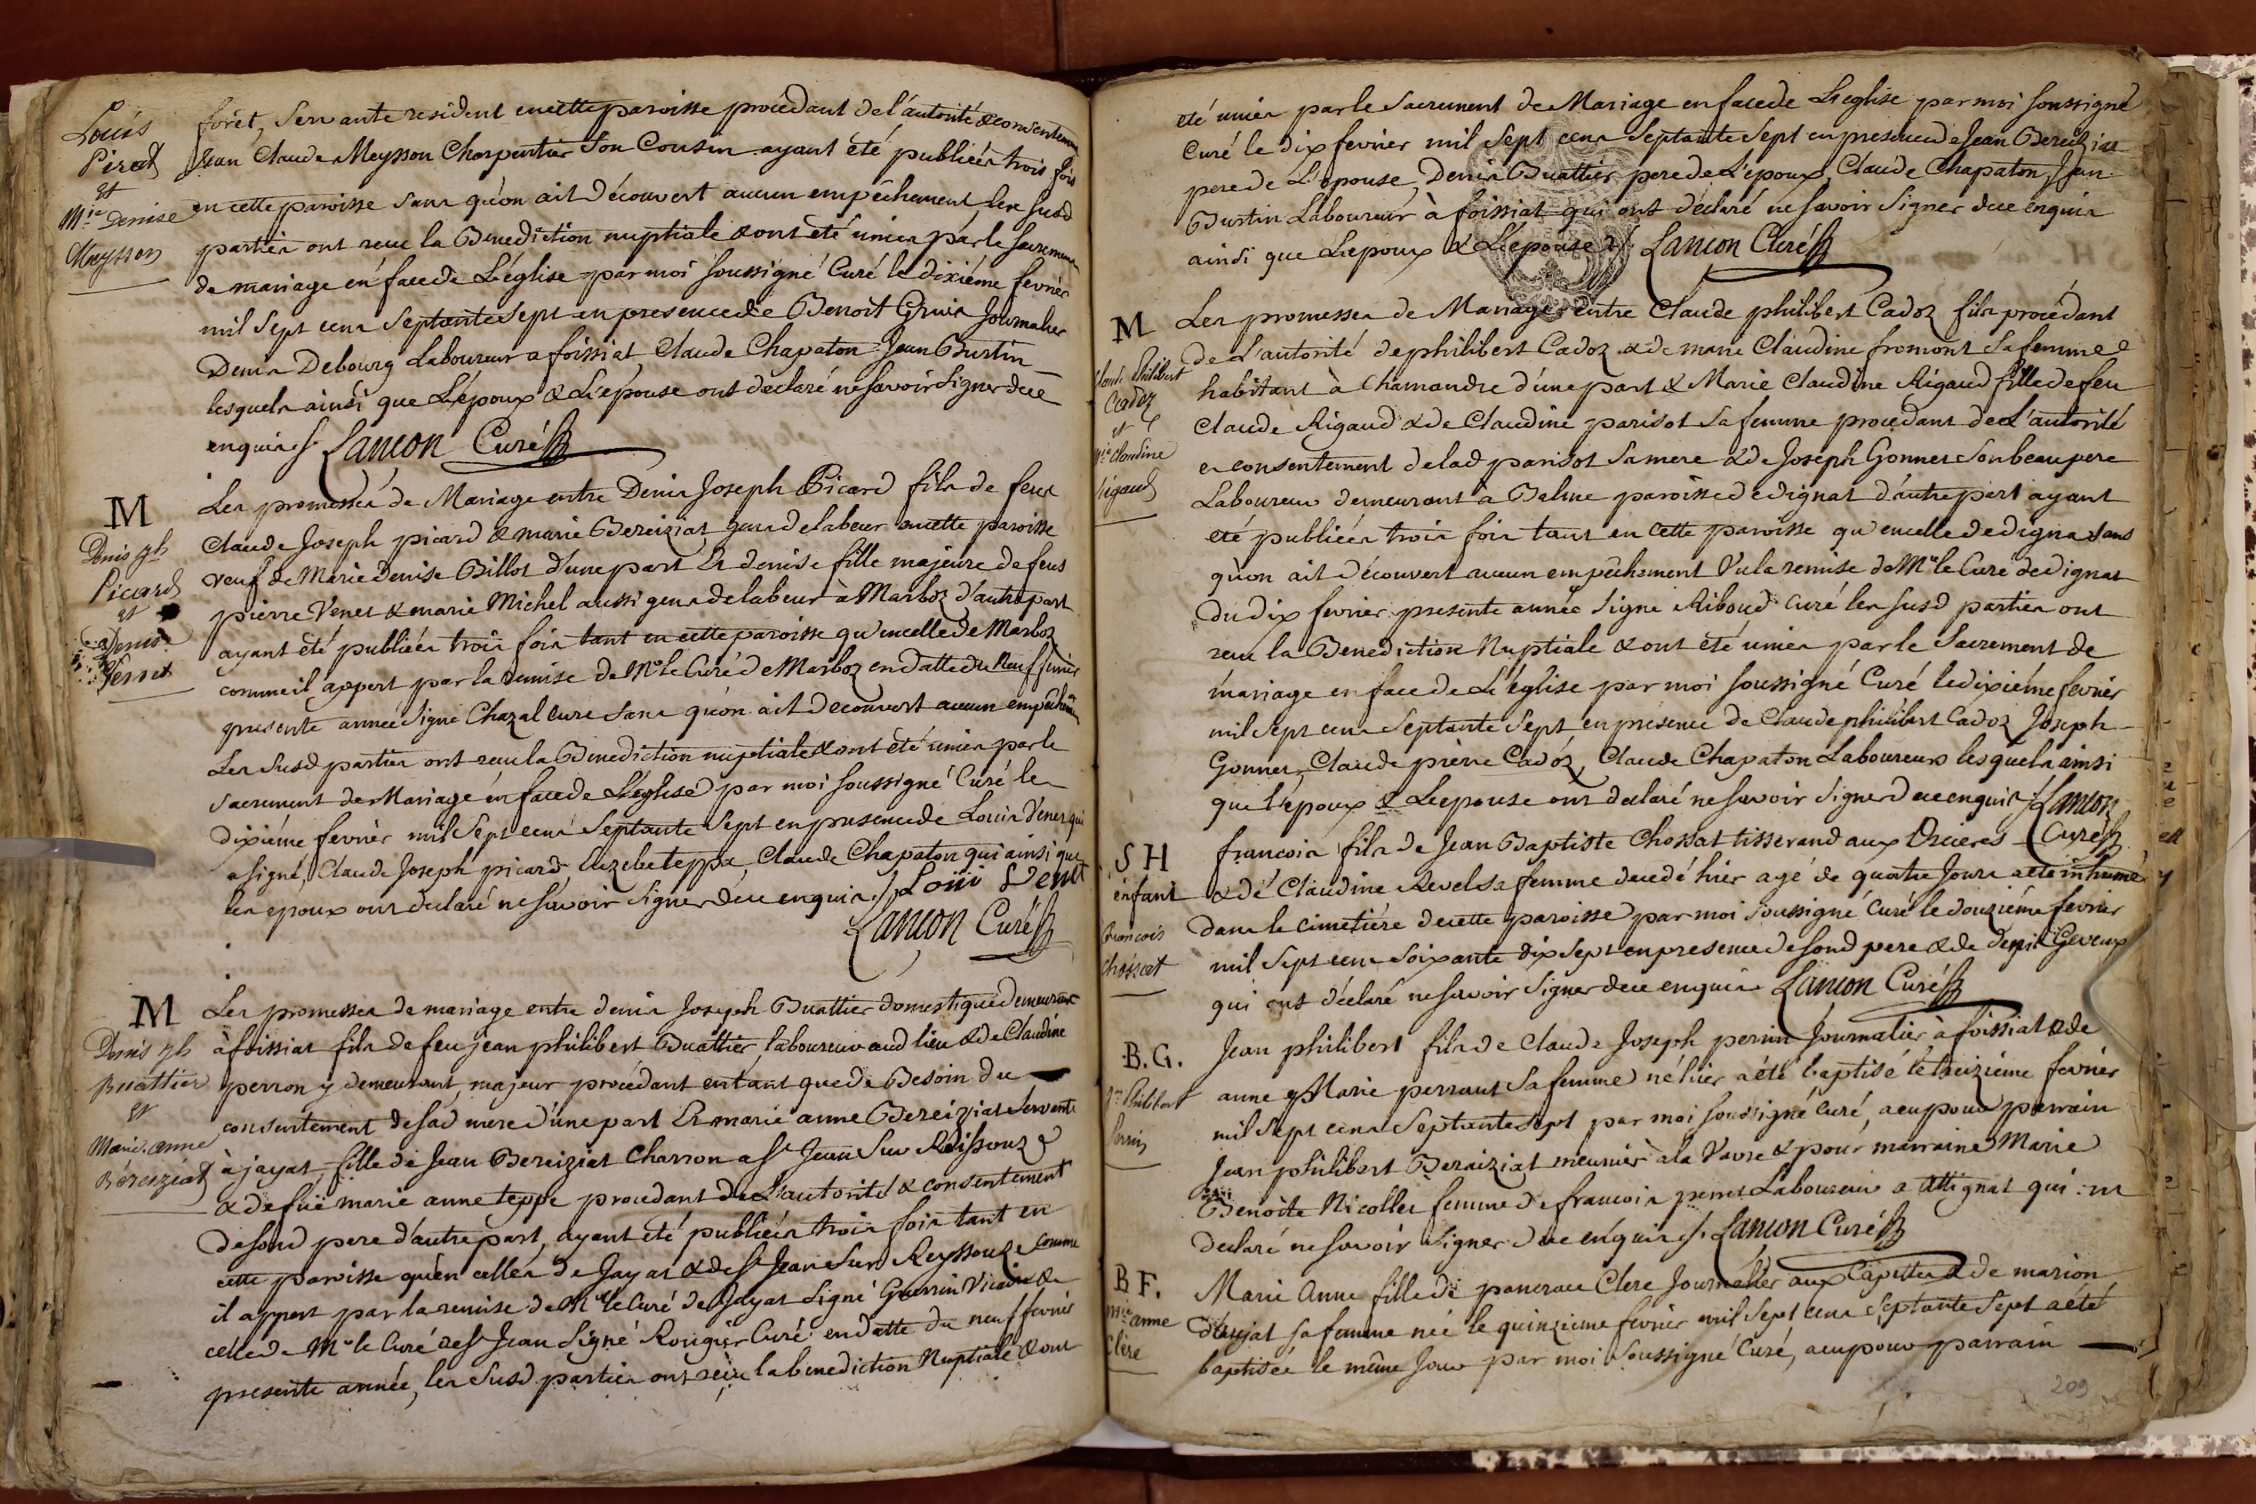 Louis
Piret
et
M.ie Denise
Meysson
forêt, Servante resident en cette paroisse procédant de l'autorité & consentement
Jean Claude Meysson Charpentier Son Cousin ayant été publiées trois fois
en cette paroisse sans qu'on ait découvert aucun empêchement, les susd
parties ont recue la Benediction nuptiale & ont été unies par le sacrement
de mariage en face de L'église par moi soussigné Curé le dixiéme fevrier
mil Sept cens Septante Sept en presence de Benoit Journalier
Denis Debourg Laboureur a foissiat Claude Chapaton Jean Burtin
lesquels ainsi que L'époux & L'épouse ont declaré ne savoir Signer de ce
enquis Lancon Curé
M
Denis jph
Picard
et
Denise
Venet
Les promesses de Mariage entre Denis Joseph Picard fils de feu
Claude Joseph picard & marie Bereiziat gens de labeur en cette paroisse
veuf de Marie Denise Billot d'une part Et denise fille majeure de feus
pierre Venet & marie Michel aussi gens de labeur à Marboz d'autre part
ayant été publiées trois fois tant en cette paroisse qu'en celle de Marboz
comme il appert par la remise de Mr le Curé de Marboz en datte du Neuf fevrier
presente année Signé Chazal Curé Sans qu'on ait decouvert aucun empêchement
Les Susd parties ont recu la Benediction nuptiale & ont été unies par le
Sacrement de Mariage en face de L'église par moi soussigné Curé le
dixiéme fevrier mil Sept cens Septante Sept en presence de Louis Venet qui
a signé, Claude Joseph picard, teppe, Claude Chapaton qui ainsi que
les epoux ont declaré ne savoir signer de ce enquis Loüi Venet
Lancon Curé
M
Denis jph
Buattier
et
Marie anne
Béreiziat
Les promesses de mariage entre denis Joseph Buattier domestique demeurant
à foissiat fils de feu jean philibert Buattier laboureur aud lieu & de Claudine
perron y demeurant, majeur procédant entant que de Besoin du
consentement de sad mere d'une part Et marie anne Bereiziat Servante
à jayat fille de Jean Bereiziat Charron a St Jean Sur Reissouze
& de füe marie anne teppe procedant de L'autorité & consentement
de sond pere d'autre part, ayant été publiées trois fois tant en
cette paroisse qu'en celles de Jayat & de St Jean Sur Reyssouze comme
il appert par la remise de Mr le Curé de Jayat Signé Guerrin Vicaire &
celle de Mr le Curé de St Jean Signé Rougier Curé en datte du neuf fevrier
presente année, les Susd parties ont recu la benediction Nuptiale & ont
été unies par le Sacrement de Mariage en face de L'église par moi soussigné
Curé le dix fevrier mil Sept cens Septante Sept en presence de Jean Bereiziat
pere de L'épouse, Denis Buattier pere de L'époux, Claude Chapaton, Jean
Burtin Laboureur à foissiat qui ont déclaré ne savoir Signer de ce enquis
ainsi que L'epoux & L'épouse Lancon Curé
M
Claude Philibert
Cadoz
et
M.ie Claudine
Rigaud
Les promesses de Mariage entre Claude philibert Cadoz fils procédant
de L'autorité de philibert Cadoz & de marie Claudine fromont Sa femme
habitant à Chamandre d'une part & Marie Claudine Rigaud fille de feu
Claude Rigaud & de Claudine parisot Sa femme procedant de L'autorité
et consentement de lad parisot Sa mere & de Joseph Gonnet Son beau pere
Laboureur demeurant à Balme paroisse de dignat d'autre part ayant
été publiées trois fois tant en cette paroisse qu'en celle de dignat Sans
qu'on ait découvert aucun empêchement Vu la remise de Mr le Curé de dignat
du dix fevrier presente année Signé Riboud Curé les Susd parties ont
recu la Benediction Nuptiale & ont été unies par le Sacrement de
mariage en face de L'église par moi soussigné Curé le dixiéme fevrier
mil Sept cens Septante Sept en presence de Claude philibert Cadoz Joseph
Gonnet Claude pierre Cadoz, Claude Chapaton Laboureurs lesquels ainsi
que L'époux & L'epouse ont declaré ne savoir Signer de ce enquis Lancon
Curé
S H
enfant
francois
chossat
francois fils de Jean Baptiste Chossat tisserand aux
& de Claudine Revel sa femme decedé hier agé de quatre Jours a été inhumé
dans le cimetiére de cette paroisse par moi soussigné Curé le douziéme fevrier
mil Sept cens Soixante dix Sept en presence de sond pere & de denis Geveux
qui ont déclaré ne savoir Signer de ce enquis Lancon Curé
B. G.
Jn Philibert
Perrin
Jean philibert fils de Claude Joseph perrin Journalier à foissiat & de
anne Marie perraut Sa femme né hier a été baptisé le treiziéme fevrier
mil Sept cens Septante Sept par moi soussigné Curé, a eu pour parrain
Jean philibert Beraiziat meunier à la Vavre & pour marraine Marie
Benoite Nicollet femme de francois perret Laboureur a Attignat qui ont
declaré ne savoir Signer de ce enquis Lancon Curé
B F.
M.ie anne
Clere
Marie Anne fille de pancrace Clere Journalier aux & de marion
sa femme née le quinzieme fevrier mil Sept cens Septante Sept a été
baptisée le même Jour par moi Soussigné Curé, a eu pour parrain
209